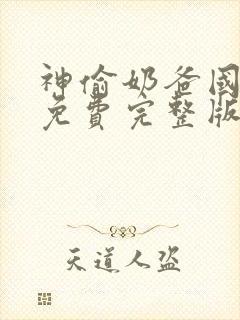 神偷奶爸国
免費完整版
天道人盗